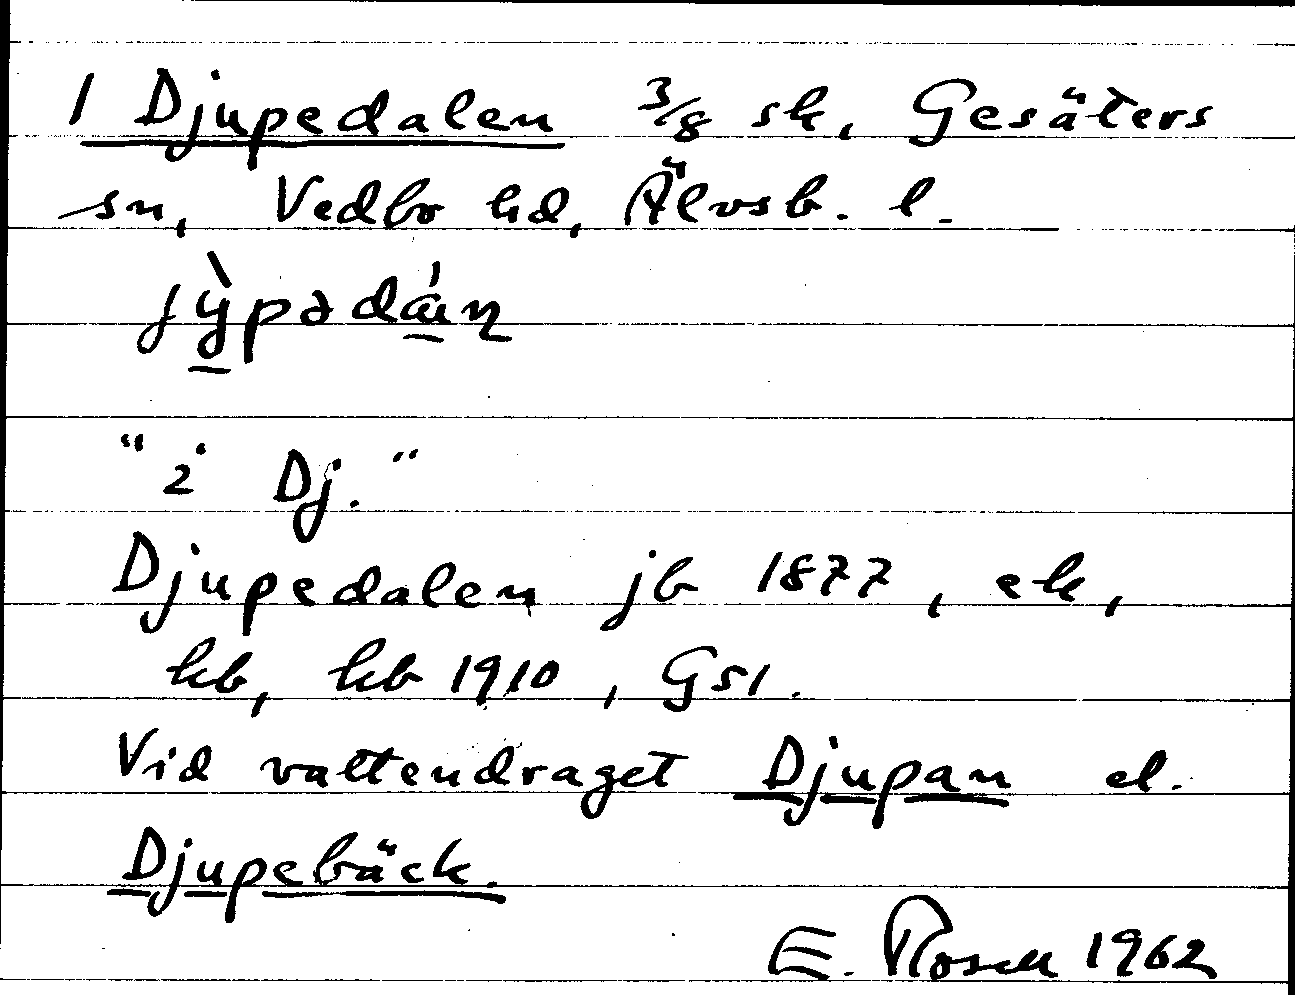 1 Djupedalen 3/8 sk, Gesäters
sn, Vedbo hd, Älvsb. l.
jỳpədáɩn
"2 Dj."
Djupedalen jb 1877, ek,
kb, hb 1910, Gsl.
Vid vattendraget Djupan el.
Djupebäck.
E. Rosell 1962